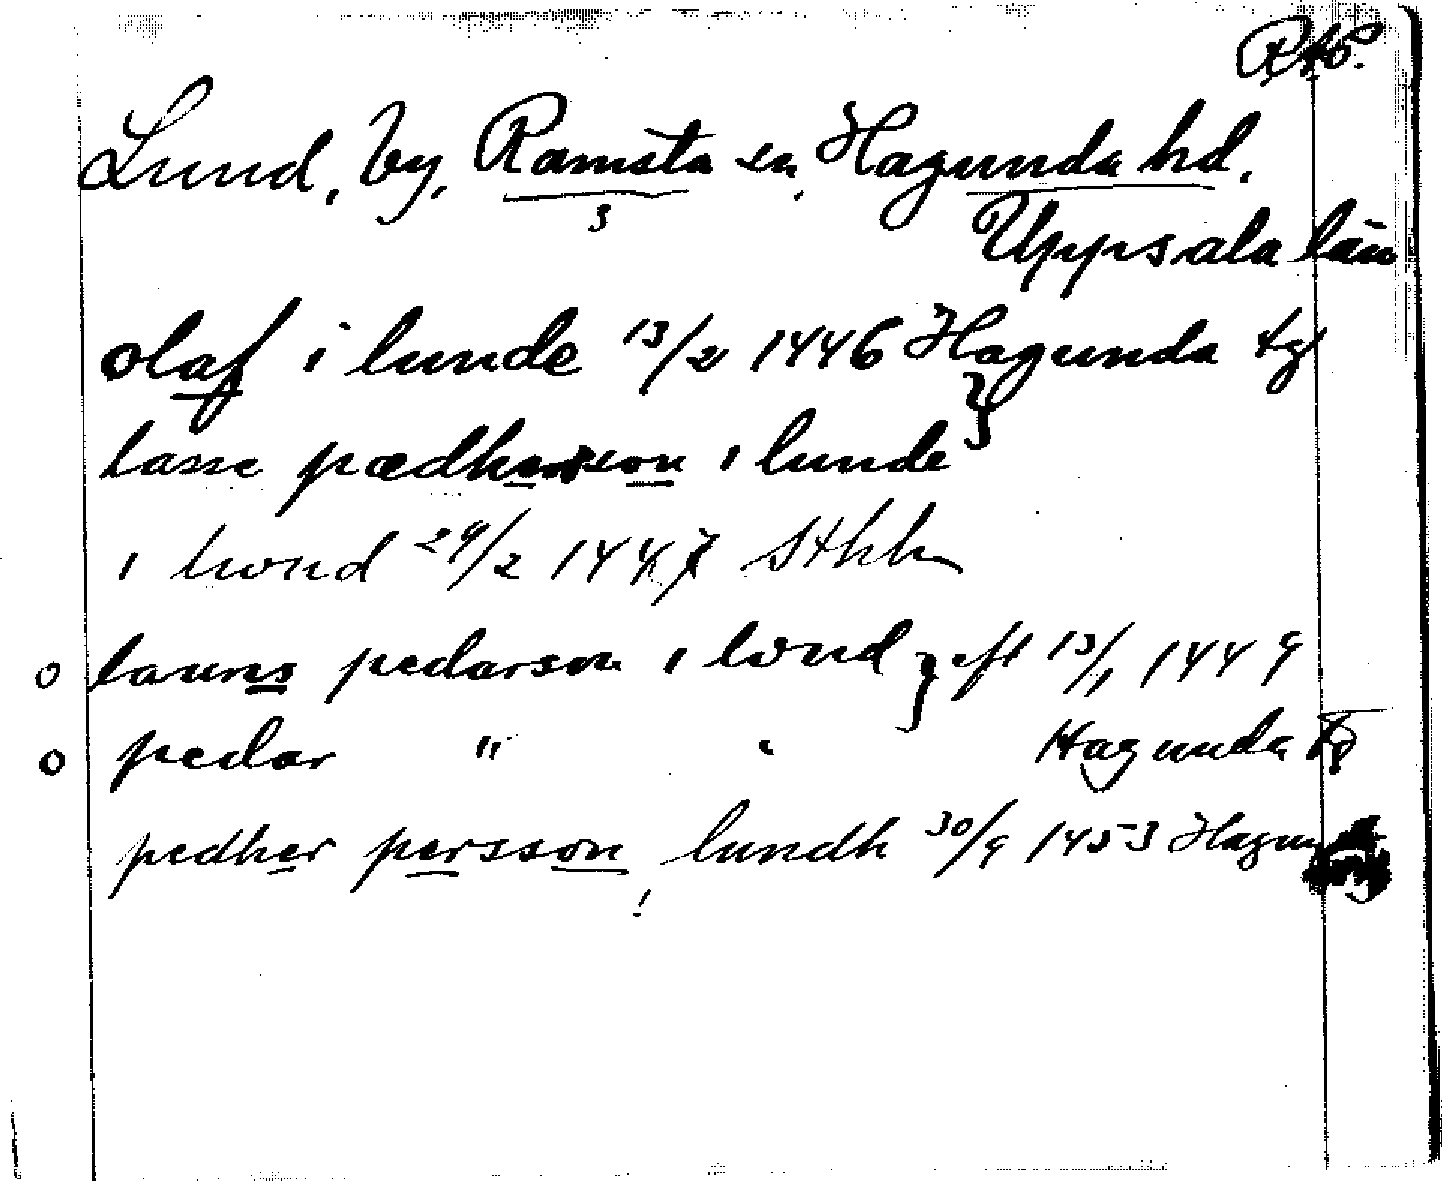 Lund, by, Ramsta sn, Hagunda hd,
Uppsala län
olaf i lunde 13/2 1446 Hagunda tg
lasse pædhersson i lunde }
i lwnd 29/2 1447 Sthlm
o laurns pedarson i lwnd } eft 13/1 1449
o pedar " " Hagunda tg
pedher persson i lundh 30/9 1453
!